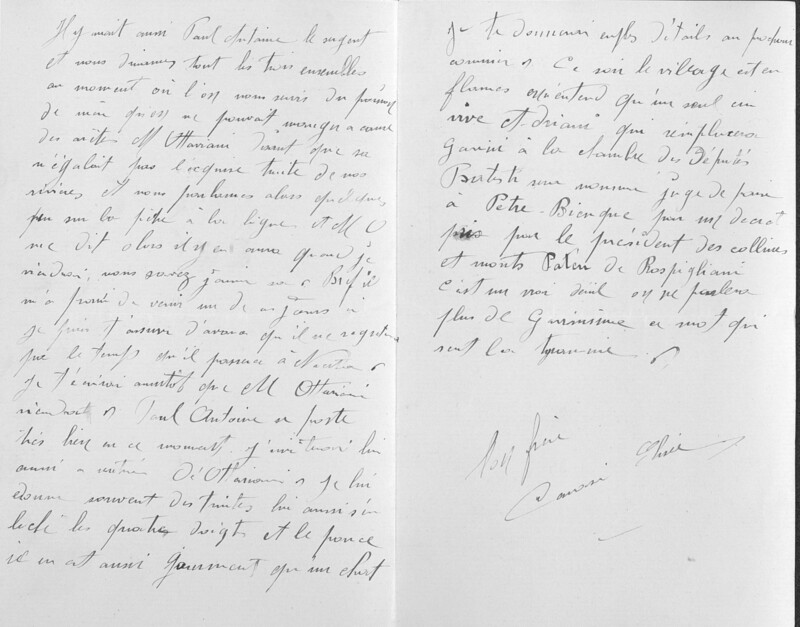 Il y avait aussi Paul Antoine le sergent
et nous dinames tout les trois ensembles
au moment où l'on nous servis du poisson
de mer qu'on ne pouvait manger a cause
des arêtes M Ottaviani disait que sa
n'égalait pas l'exquise truite de nos
rivières et nous parlames alors quelques
peu sur la pêche à la ligne et M O
me dit alors il y en aura quand je
viendrai, vous savez j'aime sa Bref il
m'a promi de venir un de ces jours et
je puis t'assurer d'avance qu'il ne regrettera
pas le temps qu'il passera à
Je t'écrirai aussitôt que M Ottaviani
viendrait Paul Antoine se porte
très bien en ce moment. j'inviterai lui
aussi a D'Ottaviani je lui
donne souvent des truites lui aussi s'en
leché les quatres doigts et le pouce
il en est aussi gourment qu'un chat
je te donnerai emples détails au prochain
courrier Ce soir le village est en
flames on n'entend qu'un seul cri
vive Adriani qui remplacera
Gavini à la chambre des Députés
Battesti sera nommé juge de paix
à Petre-Bicnque par un décret
pris par le président des collines
et monts de Rospigliani
C'est un vrai deuil on ne parlera
plus de Gavinisme ce mot qui
sent la tyrannie.
Ton frère